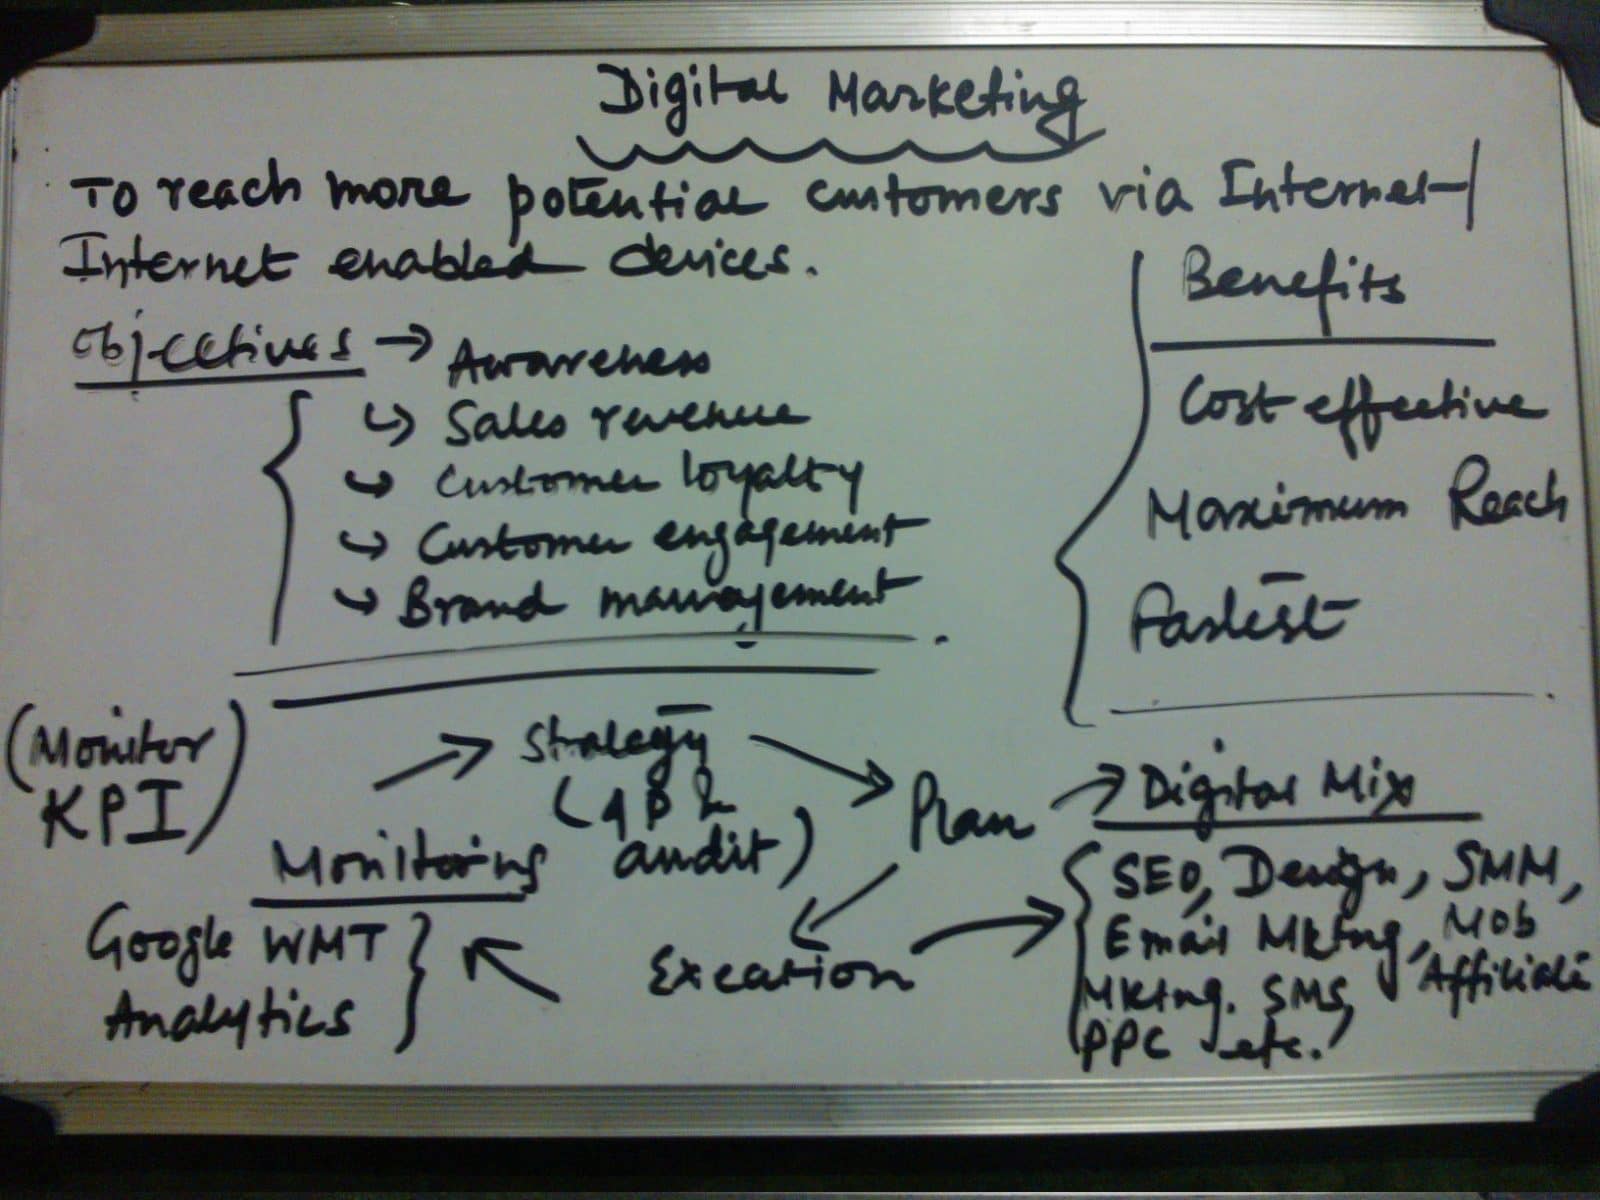 Digital Marketing
To reach more potential customers via Internet/
Internet enabled devices.
Objectives → Awareness
↳ Sales revenue
↳ Customer loyalty
↳ Customer engagement
↳ Brand management
Benefits
Cost effective
Maximum Reach
Fastest
(Monitor
KPI)
Strategy
(4P &
audit)
Plan → Digital Mix
Execution
SEO, Design, SMM,
Email Mktng, Mob
Mktng. SMS, Affiliate
PPC etc.
Monitoring
Google WMT
Analytics